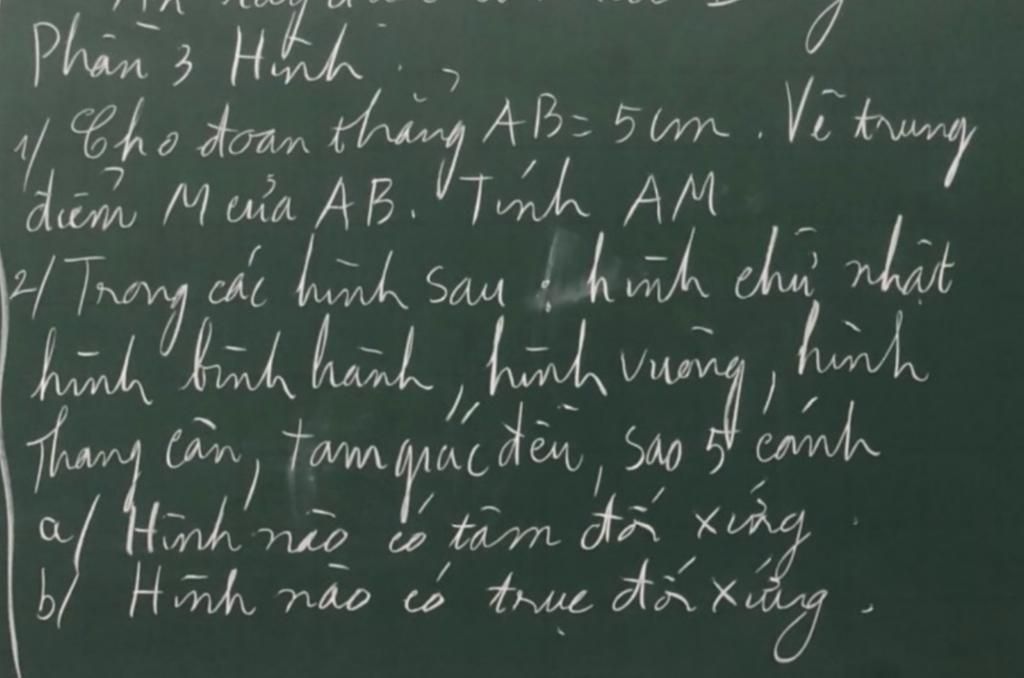 Phần 3 Hình.
1/ Cho đoạn thẳng AB = 5cm. Vẽ trung
điểm M của AB. Tính AM
2/ Trong các hình sau : hình chữ nhật
hình bình hành, hình vuông, hình
Thang cân, tam giác đều, sao 5 cánh
a/ Hình nào có tâm đối xứng
b/ Hình nào có trục đối xứng.